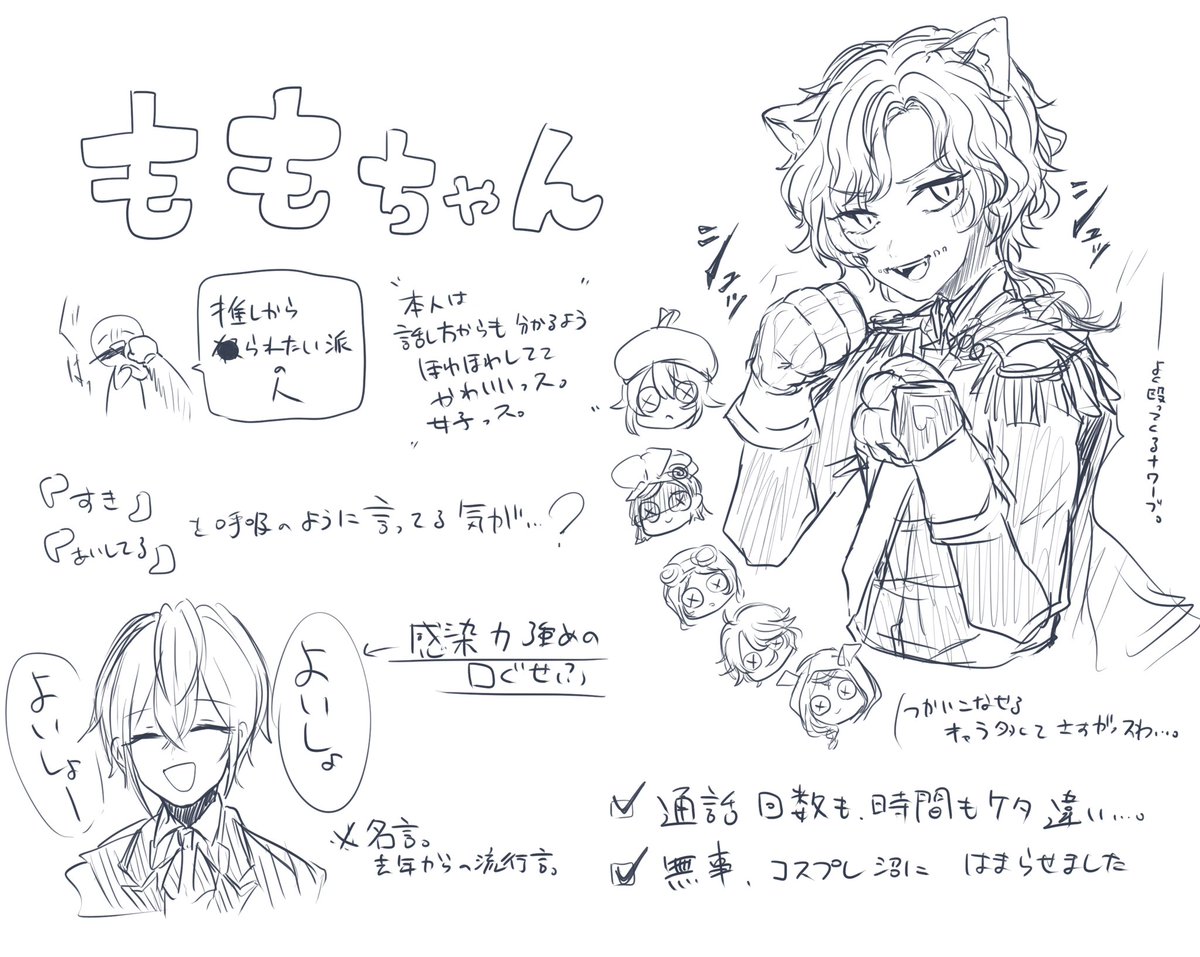 ももちゃん
推しから
られたい派
の
人
"本人は
話し方からも分かるよう
ほわほわしてて
かわいいっス。
女子っス。"
『すき』
『あいしてる』
と呼吸のように言ってる気が…?
よいしょ
よいしょー
←感染力強めの
口ぐせ(?)
※名言。
去年からの流行言。
シュッ
シュッ
よく殴ってくるナワーブ。
つかいこなせる
キャラ多くてさすがっスわ…。
☑通話回数も、時間もケタ違い…。
☑無事、コスプレ沼にはまらせました